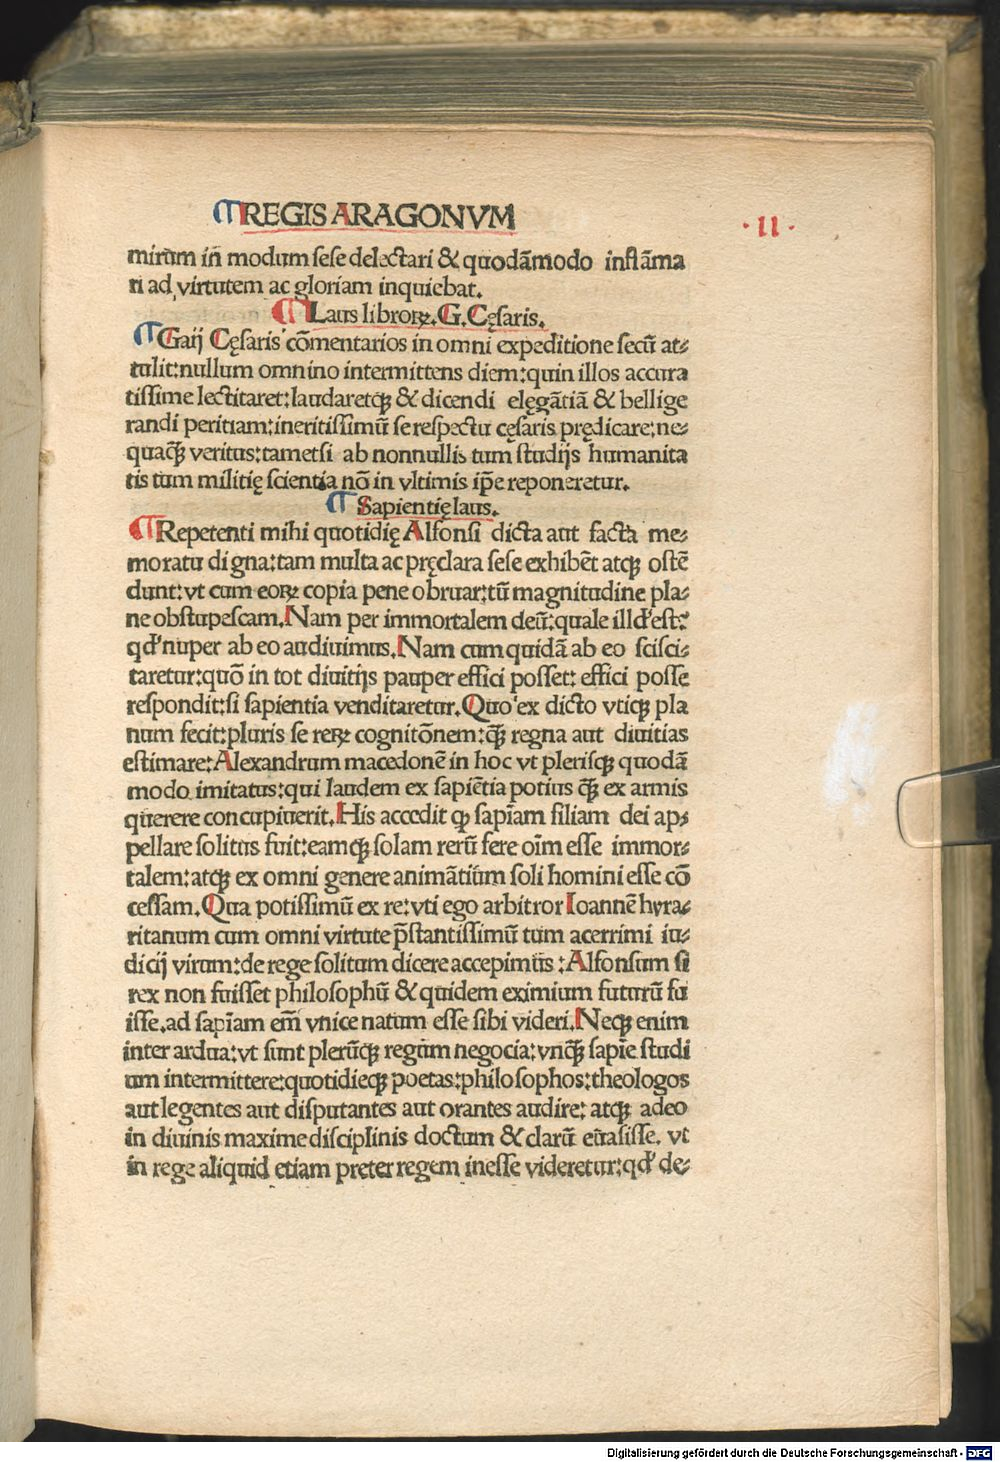 ¶REGIS ARAGONVM
·II·
mirum in̄ modum sese delectari & quodāmodo inflāma
ri ad virtutem ac gloriam inquiebat.
¶Laus libroꝝ.G.Cęsaris.
¶Gaij Cęsaris cōmentarios in omni expeditione secū at⸗
tulit:nullum omnino intermittens diem:quin illos accura
tissime lectitaret:laudaretqꝫ & dicendi elęgātiā & bellige
randi peritiam:ineritissimū se respectu cęsaris prędicare:ne⸗
quacꝙ̄ veritus:tametsi ab nonnullis tum studijs humanita
tis tum militię scientia nō in vltimis ip̄e reponeretur.
¶ Sapientię laus.
¶Repetenti mihi quotidię Alfonsi dicta aut facta me⸗
moratu digna:tam multa ac pręclara sese exhibēt atqꝫ ostē
dunt:vt cum eoꝝ copia pene obruar:tū magnitudine pla⸗
ne obstupescam.Nam per immortalem deū:quale illd' est:
qd' nuper ab eo audiuimus.Nam cum quidā ab eo scisci⸗
taretur:quō in tot diuitijs pauper effici posset: effici posse
respondit:si sapientia venditaretur.Quo ex dicto vtiqꝫ pla
num fecit:pluris se reꝝ cognitōnem:ꝙ̄ regna aut diuitias
estimare:Alexandrum macedonē in hoc vt plerisqꝫ quodā
modo imitatus:qui laudem ex sapiētia potius ꝙ̄ ex armis
querere concupiuerit.His accedit ꝙ sapīam filiam dei ap⸗
pellare solitus fuit:eamqꝫ solam rerū fere oīm esse immor⸗
talem:atqꝫ ex omni genere animātium soli homini esse cō
cessam.Qua potissimū ex re:vti ego arbitror Ioannē hyra⸗
ritanum cum omni virtute p̄stantissimū tum acerrimi iu⸗
dicij virum:de rege solitum dicere accepimus:Alfonsum si
rex non fuisset philosophū & quidem eximium futurū fu
isse.ad sapīam em̄ vnice natum esse sibi videri.Neqꝫ enim
inter ardua:vt sunt plerūqꝫ regum negocia:vnꝙ̄ sapīe studi
um intermittere:quotidieqꝫ poetas:philosophos:theologos
aut legentes aut disputantes aut orantes audire: atqꝫ adeo
in diuinis maxime disciplinis doctum & clarū euasisse. vt
in rege aliquid etiam preter regem inesse videretur:qd' de⸗
Digitalisierung gefördert durch die Deutsche Forschungsgemeinschaft - DFG